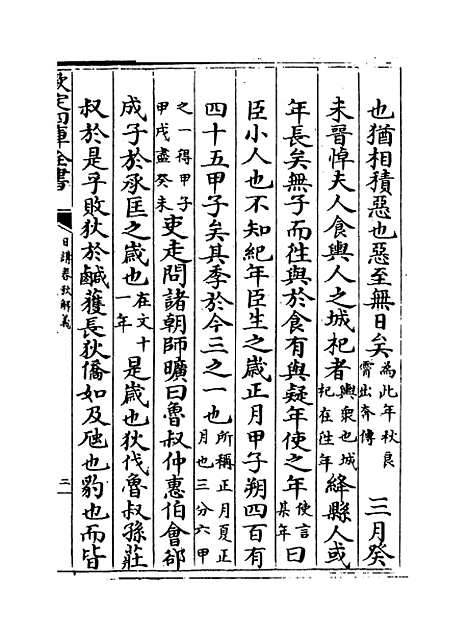 也猶相積惡也惡至無日矣為此年秋良霄出奔傳　三月癸
未晉悼夫人食輿人之城杞者輿衆也城杞在往年絳縣人或
年長矣無子而往與於食有與疑年使之年使言其年曰
臣小人也不知紀年臣生之歲正月甲子朔四百有
四十五甲子矣其季於今三之一也所稱正月夏正月也三分六甲
之一得甲子甲戌盡癸未吏走問諸朝師曠曰魯叔仲惠伯會郤
成子於承匡之歲也在文十一年是歲也狄伐魯叔孫莊
叔於是乎敗狄於鹹獲長狄僑如及虺也豹也而皆
欽定四庫全書
日講春秋解義
三